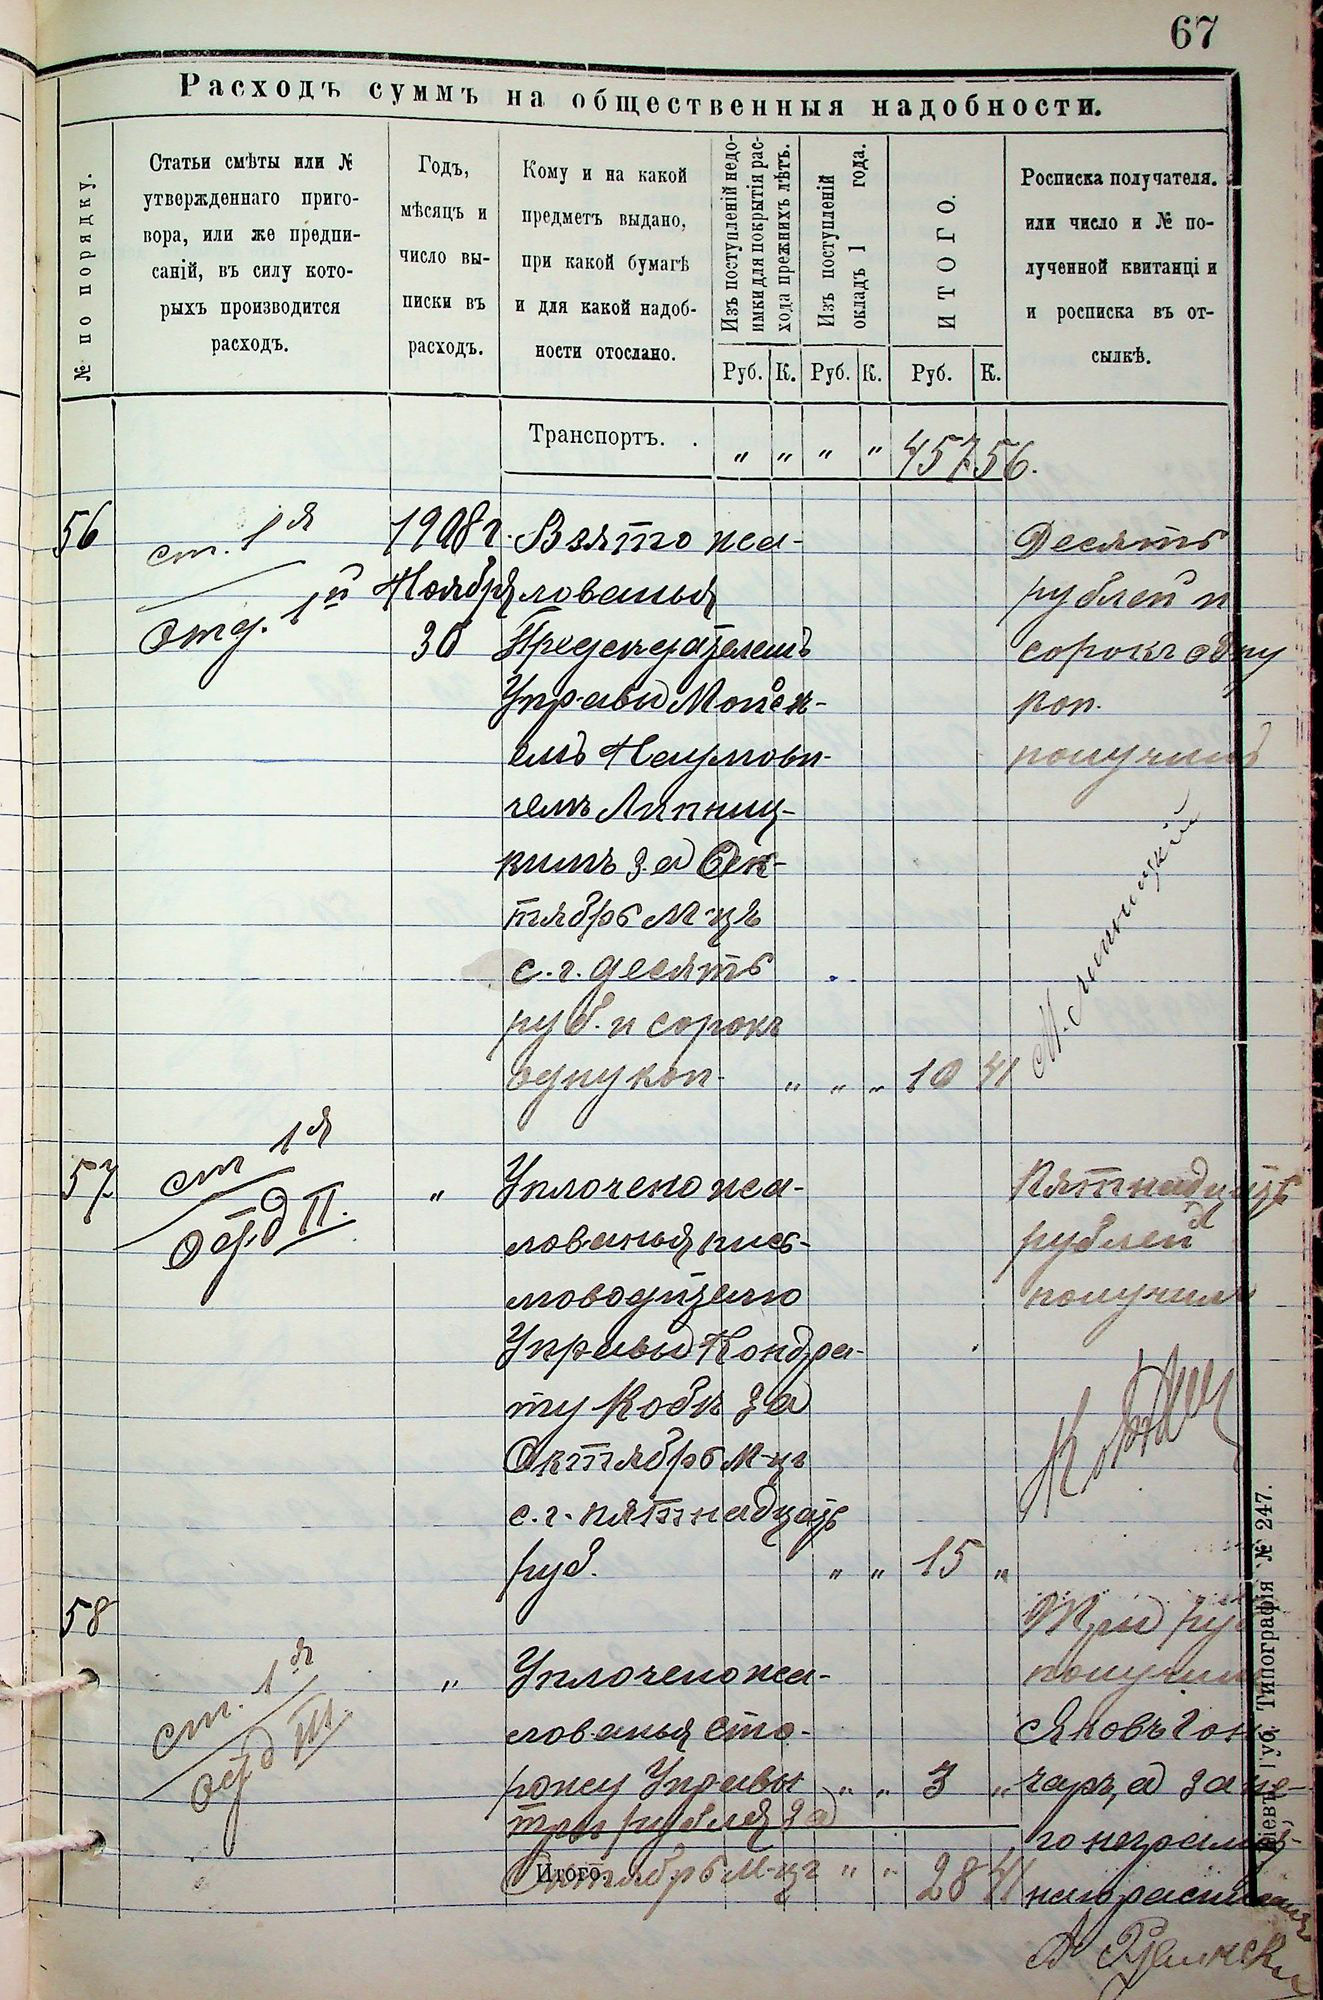 67
Расходъ суммъ на общественныя надобности.
№ по порядку.
Статьи смѣты или №
утвержденнаго приго-
вора, или же предпи-
саній, въ силу кото-
рыхъ производится
расходъ.
Годъ,
мѣсяцъ и
число вы-
писки въ
расходъ.
Кому и на какой
предметъ выдано,
при какой бумагѣ
и для какой надоб-
ности отослано.
Изъ поступленій недо-
имки для покрытія рас-
хода прежнихъ лѣтъ.
Изъ поступленій
окладъ 1 года.
ИТОГО.
Росписка получателя.
или число и № по-
лученной квитанціи
и росписка въ от-
сылкѣ.
Руб. К. Руб. К. Руб. К.
Транспортъ. . „ „ „ „ 457 56.
56
ст. 1я
Отд. 1й
1908 г.
Ноября
30
Взято жа-
лованья
Предсѣдателемъ
Управы Мойсе-
емъ Наумови-
чемъ Липниц-
кимъ за Ок-
тябрь м-цъ
с. г. десять
руб. и сорокъ
одну коп. „ „ „ 10 41
Десять
рублей и
сорокъ одну
коп.
получилъ
М. Липницкій
57
ст 1я
Отд II.
„
Уплочено жа-
лованья пись-
моводителю
Управы Кондра-
ту Кобъ за
Октябрь м-цъ
с. г. пятнадцать
руб. „ „ 15 „
Пятнадцать
рублей
получилъ
58
ст. 1я
отд III.
„
Уплочено жа-
лованья сто-
рожу Управы „ „ 3 „
три рубля за
Октябрь м-цъ
Итого. „ „ 28 41
Три руб
получилъ
Яковъ Гон
чаръ, а за не-
го неграмот-
наго расписался
Кіевъ, Губ. Типографія № 247.